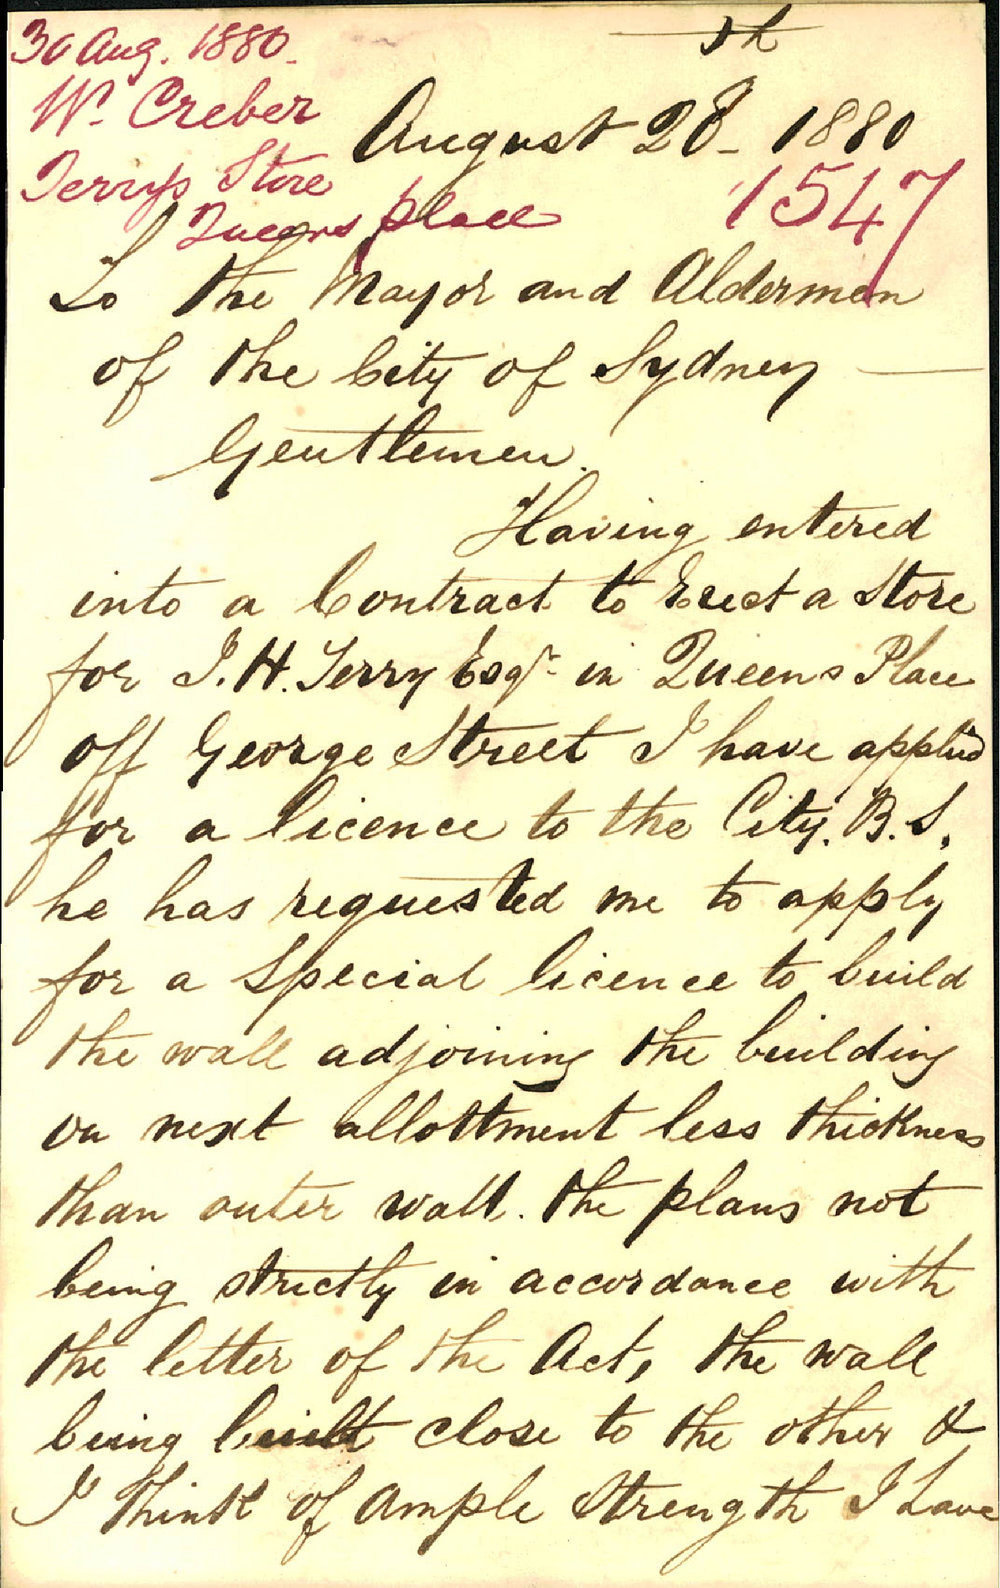 30 Aug. 1880.
W. Creber
Terrys Store
Queens place
th
August 28 - 1880
1547
To the Mayor and Aldermen
of the City of Sydney
Gentlemen.
Having entered
into a Contract to Erect a Store
for J. H. Terry Esqr in Queens Place
off George Street I have applied
for a licence to the City. B. S,
he has requested me to apply
for a Special licence to build
the wall adjoining the building
on next allottment less thickness
than outer wall. the plans not
being strictly in accordance with
the letter of the Act, the wall
being built close to the other &
I think of ample Strength I have